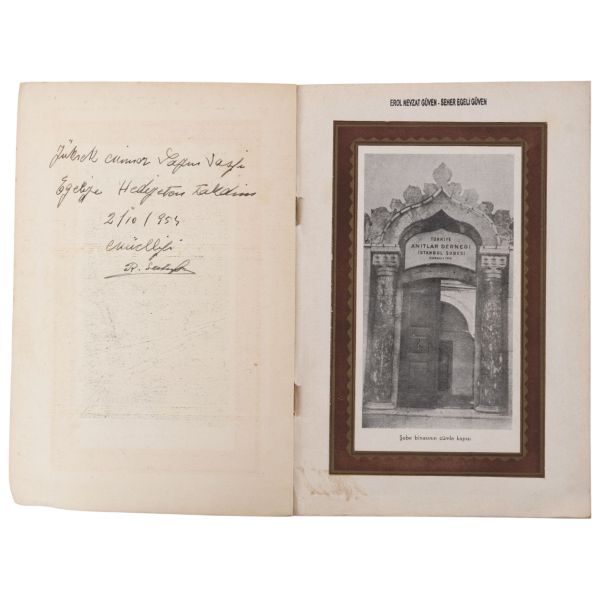 Yüksek mimar Sayın Vasfi
Egeliye Hediyeten takdim
2/10/954
müellifi
EROL NEVZAT GÜVEN - SEHER EGELİ GÜVEN
TÜRKİYE
ANITLAR DERNEĞİ
İSTANBUL ŞUBESİ
Şube binasının cümle kapısı